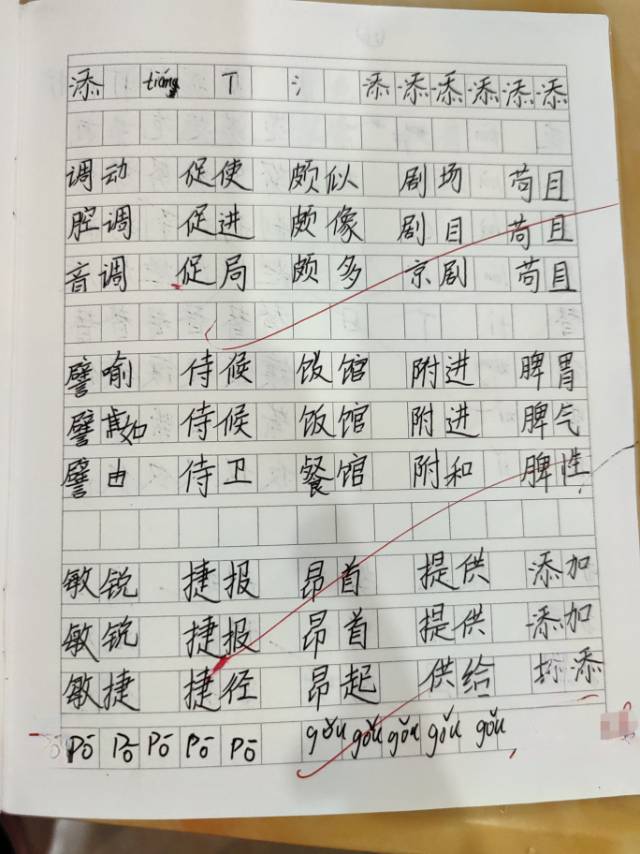 添 tiāng 丁 氵 添 添 添 添 添 添
调动 促使 颇似 剧场 苟且
腔调 促进 颇像 剧目 苟且
音调 促局 颇多 京剧 苟且
譬喻 侍候 饭馆 附进 脾胃
譬如 侍候 饭馆 附进 脾气
譬由 侍卫 餐馆 附和 脾性
敏锐 捷报 昂首 提供 添加
敏锐 捷报 昂首 提供 添加
敏捷 捷径 昂起 供给 添
pō pō pō pō pō gǒu gǒu gǒu gǒu gǒu